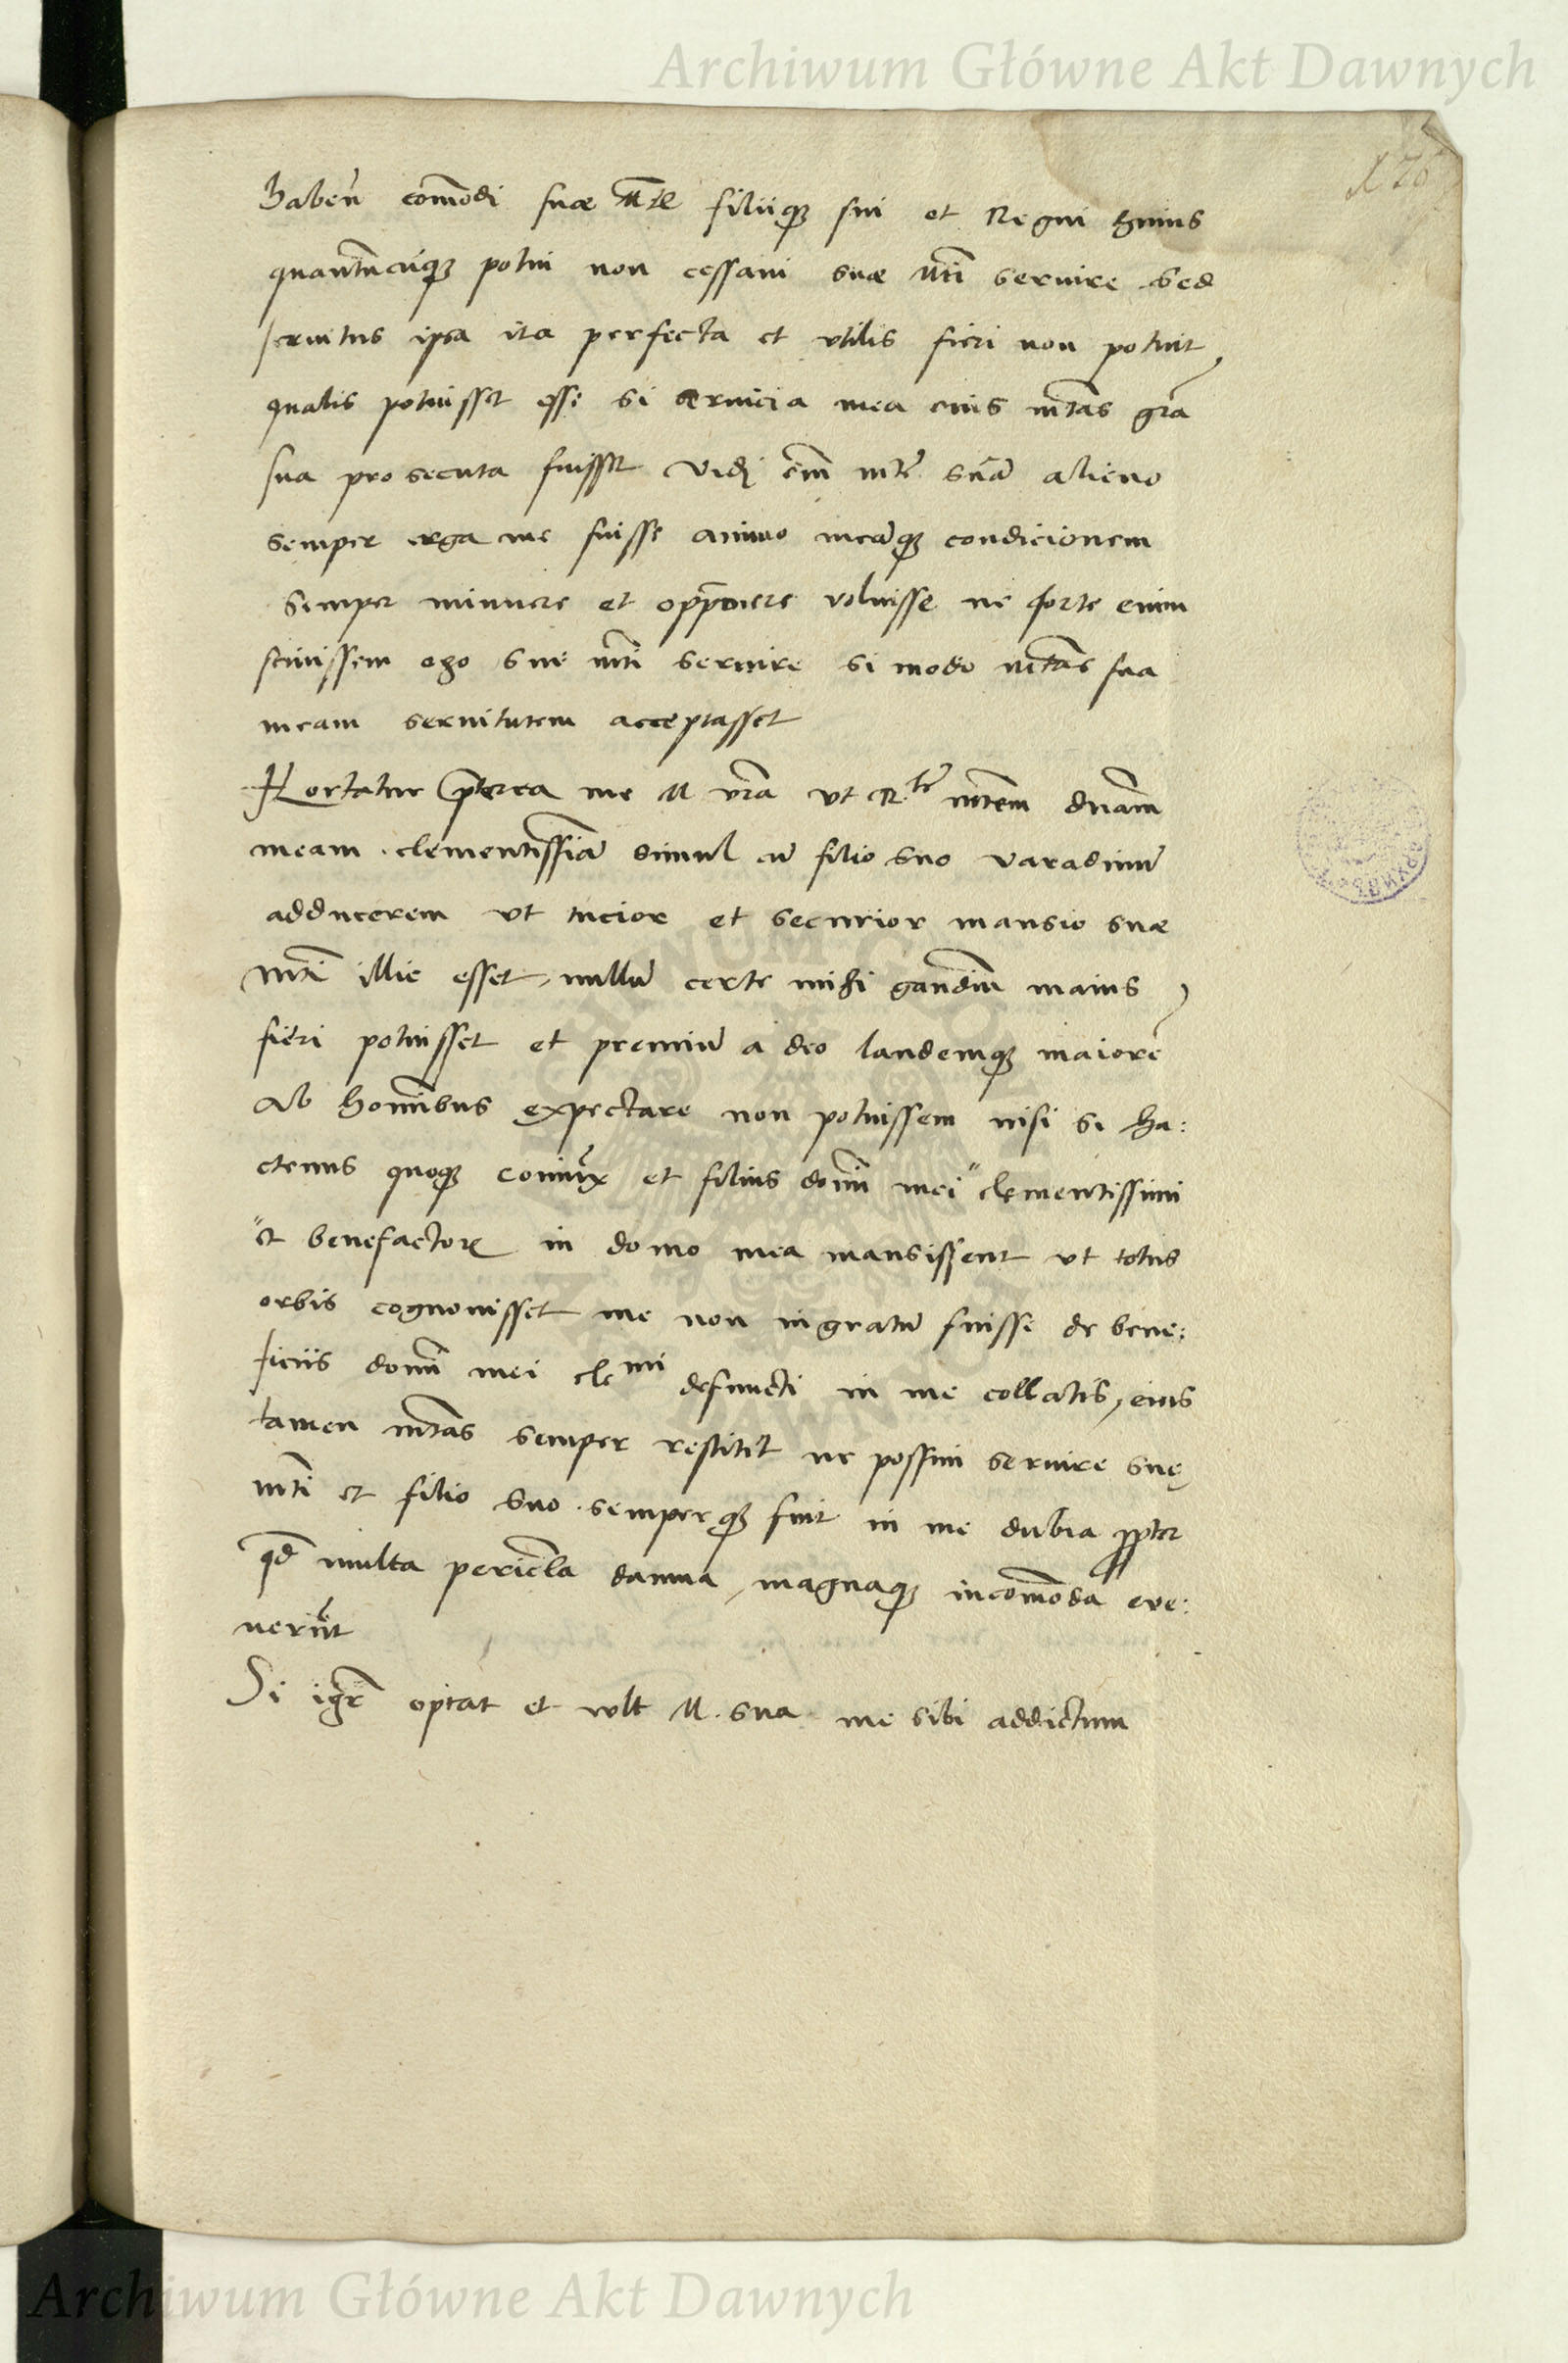 Archiwum Główne Akt Dawnych
haben̄ com̄odi suae Mtis filiiq́ꝫ sui et Regni huius
quantu̅cu̅qꝫ potui non cessavi suae Mti̅ servire Sed
servitus ipsa ita perfecta et utilis fieri non potuit,
qualis potuisset esse si servicia mea eius mtas̅ gr̅a
sua prosecuta fuisset Vidi em̅ mte̅ sua̅ alieno
semper erga me fuisse animo mea̅qꝫ condicionem
semper minuere et opp̅mere voluisse ne forte enim
scivissem ego sue mti̅ servire si modo mtas̅ sua
meam servitutem acceptasset
Hortatur p̅terea me M vr̅a ut R.te̅ mtem̅ dnam̅
meam clementissi̅a̅ simul cu̅ filio suo varadinu̅
adducerem ut tucior et securior mansio suae
mti̅ illic esset, nullu̅ certe mihi gaudiu̅ maius
fieri potuisset et premiu̅ a deo laudemqꝫ maiore̅
Ab hominibus expectare non potuissem nisi si ha:
ctenus quoqꝫ coniu̅x et filius domi̅ mei clementissimi
et benefactor̅ in domo mea mansissent ut totus
orbis cognovisset me non ingratu̅ fuisse de bene:
ficiis domi̅ mei cle mi defuncti in me collatis, eius
tamen mtas̅ semper restitit ne possim servire suę
mti̅ et filio suo semperqꝫ fuit in me dubia p̅pter
qd̅ multa pericl̅a damna, magnaqꝫ incom̅oda eve:
neru̅t
Si igr̅ optat et vult M. sua me sibi addictum
Archiwum Główne Akt Dawnych